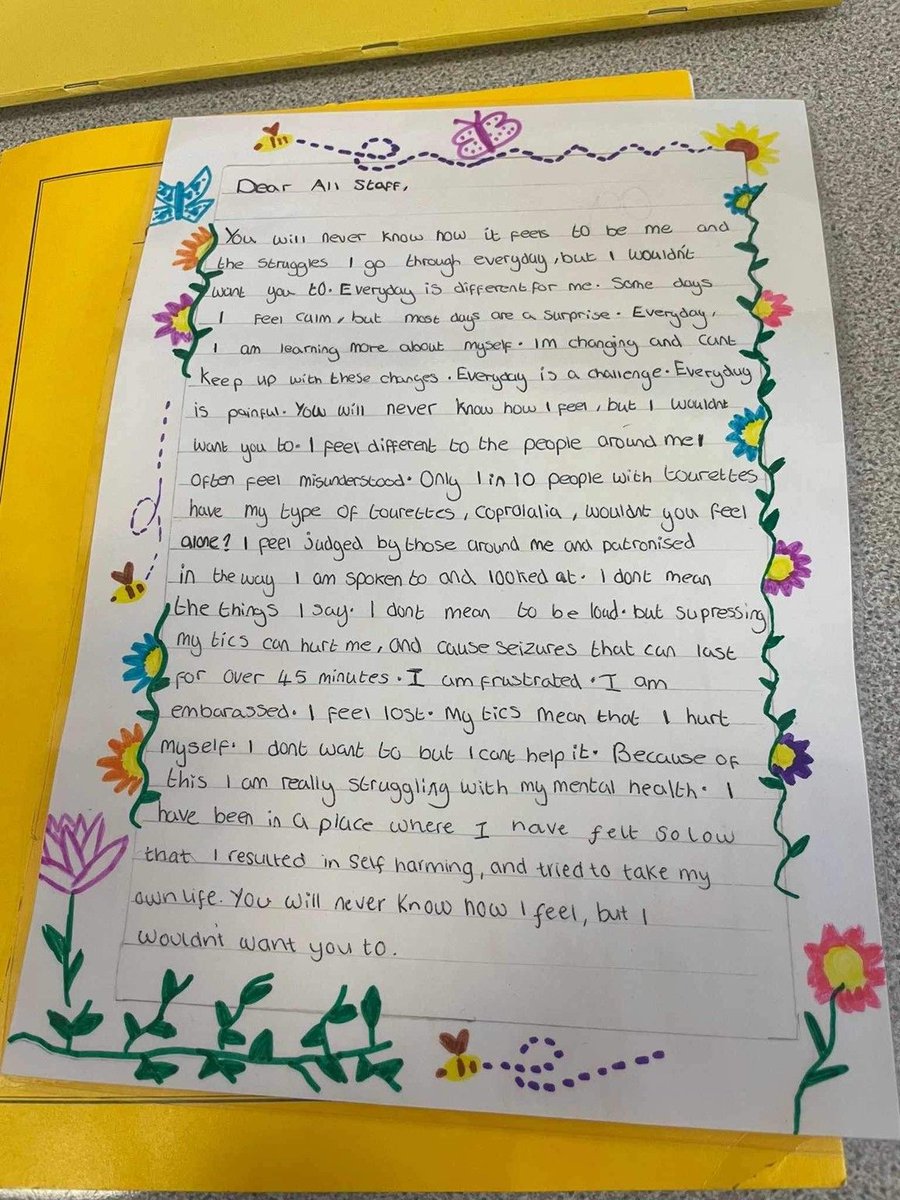 Dear All Staff,
You will never know how it feels to be me and
the struggles I go through everyday, but I wouldn't
want you to. Everyday is different for me. Some days
I feel calm, but most days are a surprise. Everyday,
I am learning more about myself. Im changing and cant
keep up with these changes. Everyday is a challenge. Everyday
is painful. You will never know how I feel, but I wouldnt
want you to. I feel different to the people around me I
often feel misunderstood. Only 1 in 10 people with tourettes
have my type of tourettes, coprolalia, wouldnt you feel
alone? I feel judged by those around me and patronised
in the way I am spoken to and looked at. I dont mean
the things I say. I dont mean to be loud. but supressing
my tics can hurt me, and cause seizures that can last
for over 45 minutes. I am frustrated. I am
embarassed. I feel lost. My tics mean that I hurt
myself. I dont want to but I cant help it. Because of
this I am really struggling with my mental health. I
have been in a place where I have felt so low
that I resulted in self harming, and tried to take my
own life. You will never know how I feel, but I
wouldn't want you to.